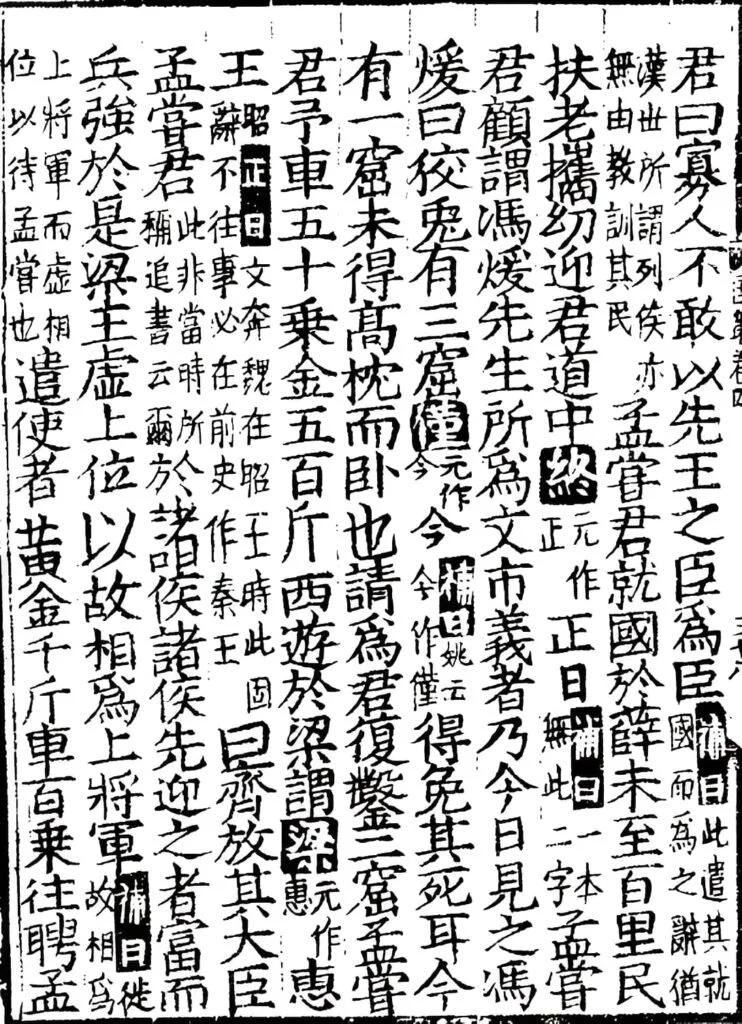 君曰寡人不敢以先王之臣爲臣補曰此遣其就國而爲之辭猶
漢世所謂列侯亦無由教訓其民孟嘗君就國於薛未至百里民
扶老攜幼迎君道中終元作正正日補曰一本無此二字孟嘗
君顧謂馮煖先生所爲文市義者乃今日見之馮
煖曰狡兔有三窟僅元作今今補曰姚云今作僅得免其死耳今
有一窟未得高枕而卧也請爲君復鑿二窟孟嘗
君予車五十乗金五百斤西遊於梁謂梁元作惠惠
王昭正曰文奔魏在昭王時此固辭不往事必在前史作秦王曰齊放其大臣
孟嘗君此非當時所稱追書云爾於諸侯諸侯先迎之者富而
兵強於是梁王虛上位以故相爲上將軍補曰徙故相爲
上將軍而虛相位以待孟嘗也遣使者黄金千斤車百乗往聘孟